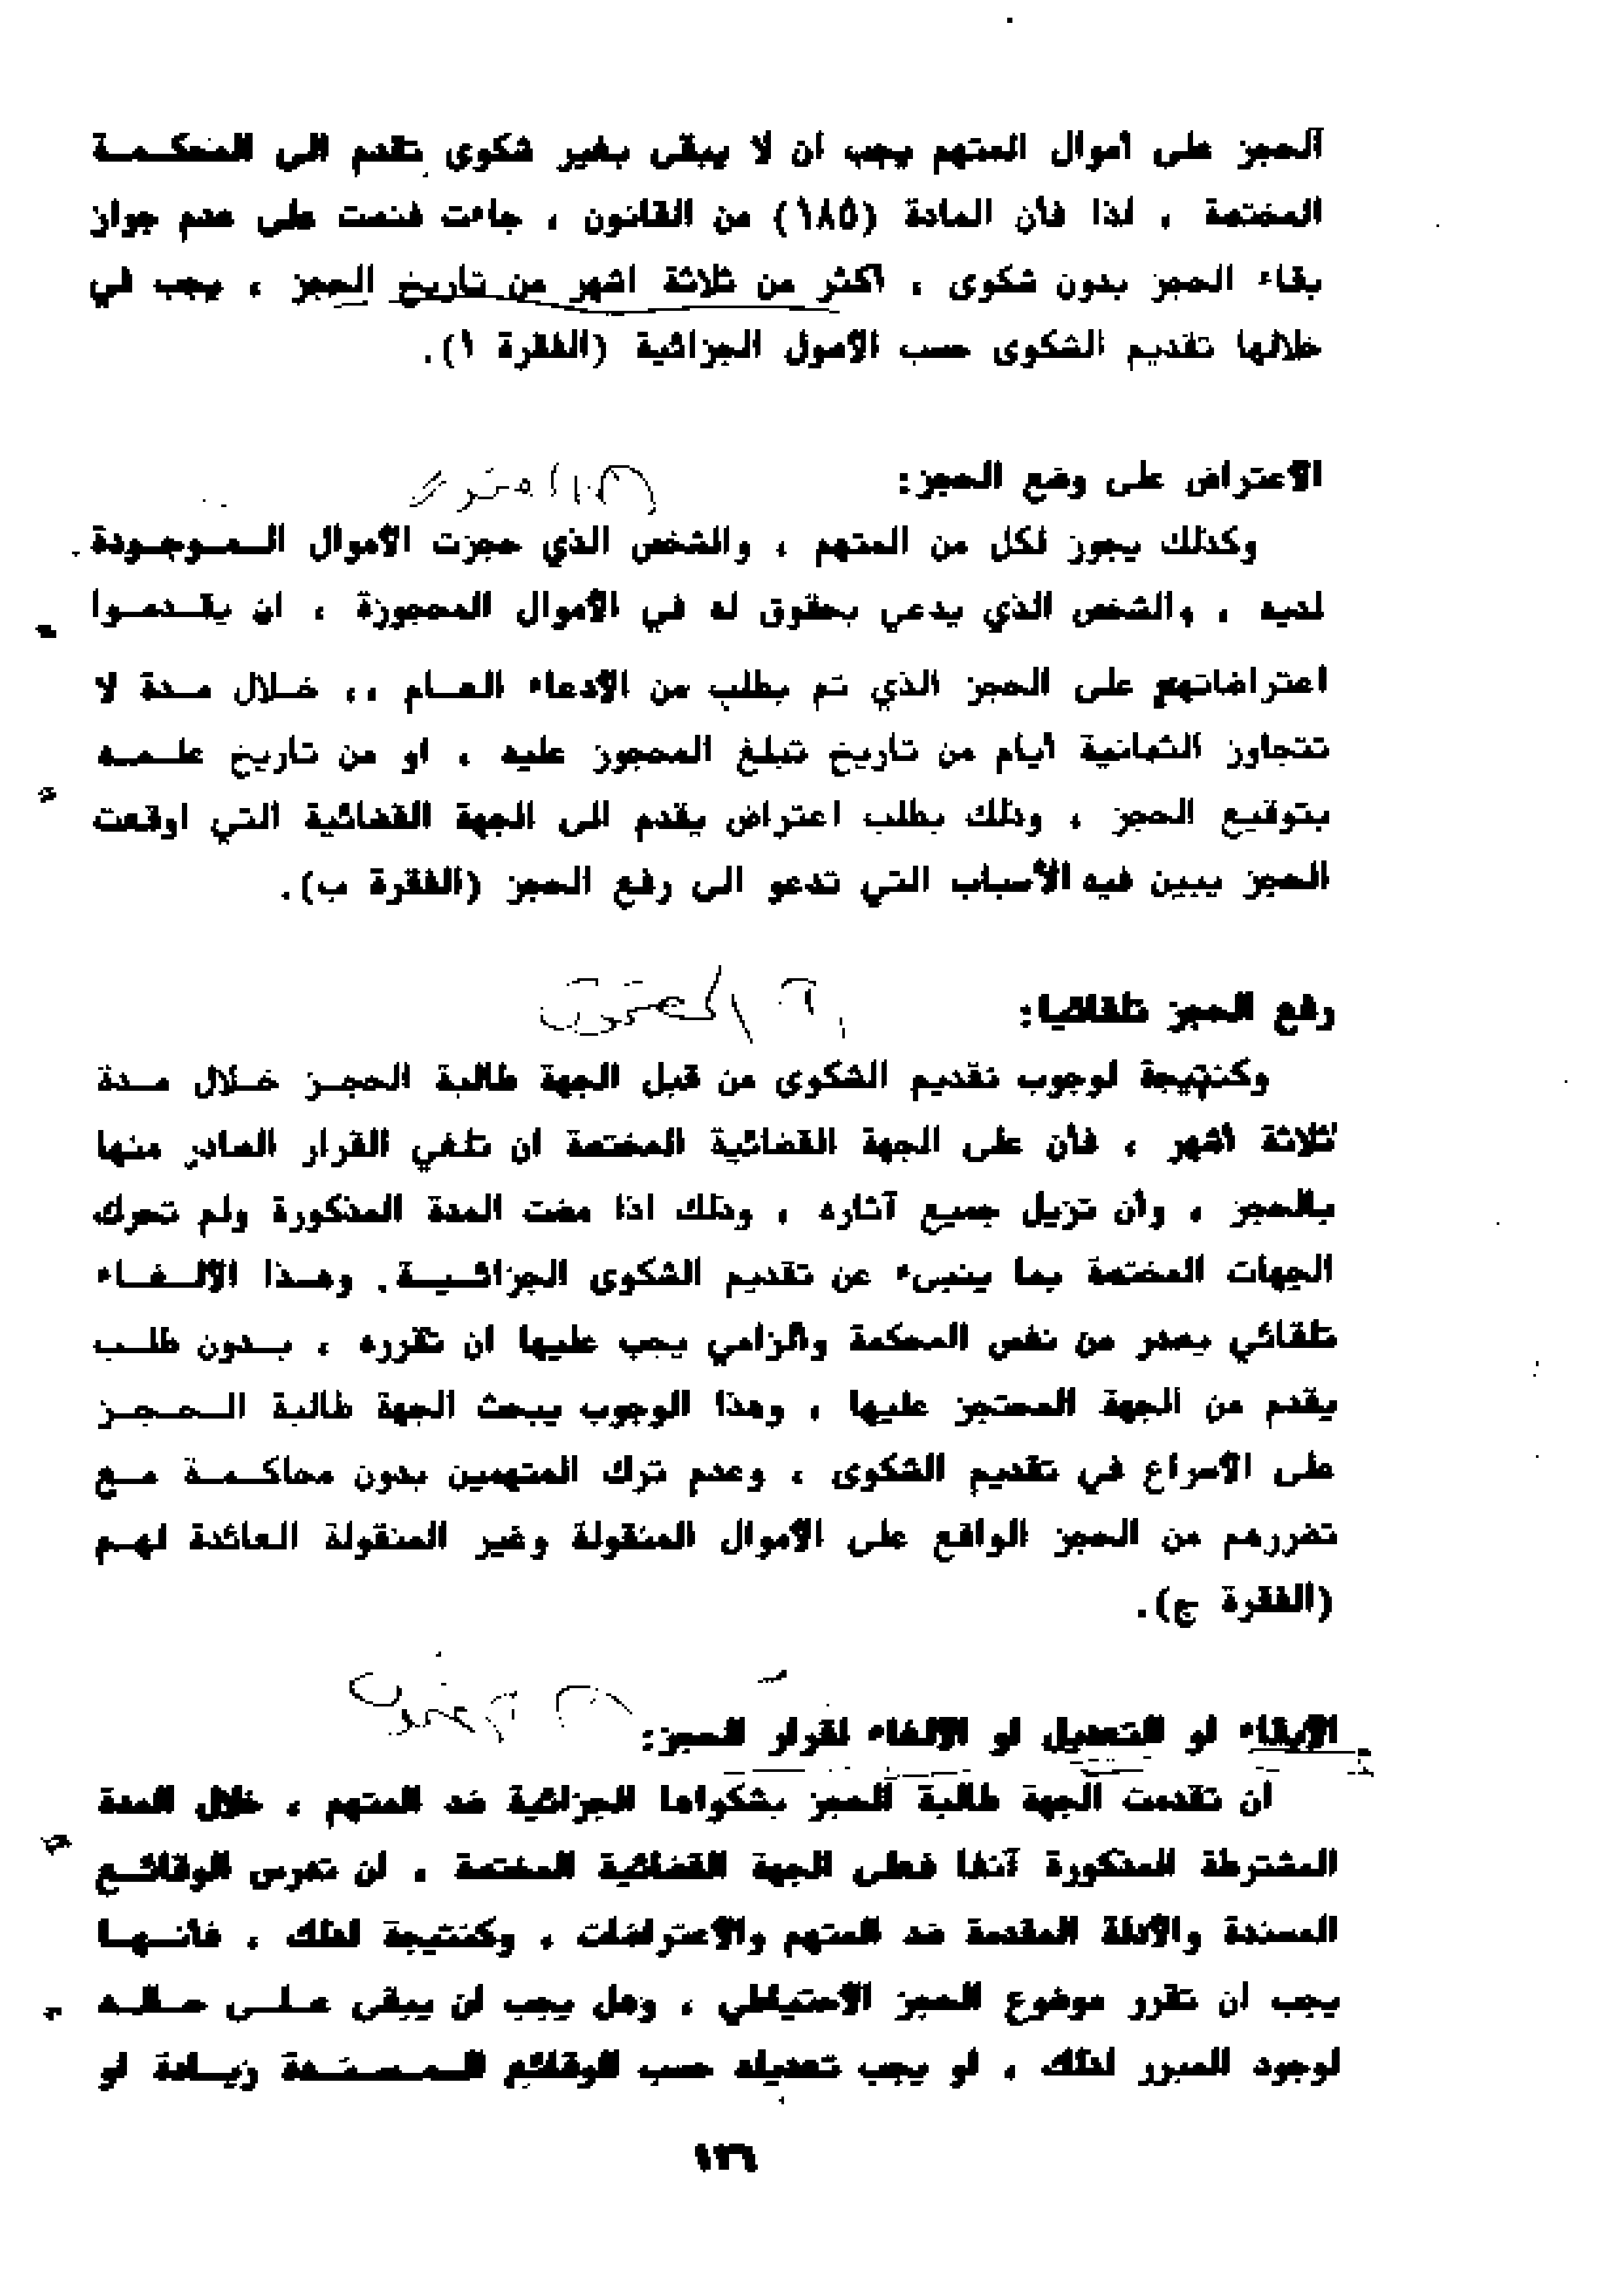 الحجز على أموال المتهم يجب ان لا يبقى بغير شكوى تقدم الى المحكمة
المختصة ، لذا فأن المادة (١٨٥) من القانون ، جاءت فنصت على عدم جواز
بقاء الحجز بدون شكوى ، أكثر من ثلاثة اشهر من تاريخ الحجز ، يجب في
خلالها تقديم الشكوى حسب الأصول الجزائية (الفقرة ١).
الاعتراض على وضع الحجز:
وكذلك يجوز لكل من المتهم ، والشخص الذي حجزت الأموال الموجودة
لديه ، والشخص الذي يدعي بحقوق له في الأموال المحجوزة ، ان يقدموا
اعتراضاتهم على الحجز الذي تم بطلب من الأدعاء العام ،، خلال مدة لا
تتجاوز الثمانية أيام من تاريخ تبلغ المحجوز عليه ، او من تاريخ علمه
بتوقيع الحجز ، وذلك بطلب اعتراض يقدم الى الجهة القضائية التي اوقعت
الحجز يبين فيه الأسباب التي تدعو الى رفع الحجز (الفقرة ب).
رفع الحجز تلقائيا:
وكنتيجة لوجوب تقديم الشكوى من قبل الجهة طالبة الحجز خلال مدة
ثلاثة أشهر ، فأن على الجهة القضائية المختصة ان تلغي القرار الصادر منها
بالحجز ، وأن تزيل جميع آثاره ، وذلك اذا مضت المدة المذكورة ولم تحرك
الجهات المختصة بما ينبىء عن تقديم الشكوى الجزائية. وهذا الألغاء
تلقائي يصدر من نفس المحكمة والزامي يجب عليها ان تقرره ، بدون طلب
يقدم من الجهة المحتجز عليها ، وهذا الوجوب يبحث الجهة طالبة الحجز
على الأسراع في تقديم الشكوى ، وعدم ترك المتهمين بدون محاكمة مع
تضررهم من الحجز الواقع على الأموال المنقولة وغير المنقولة العائدة لهم
(الفقرة ج).
الأبقاء او التعديل او الالغاء لقرار الحجز:
ان تقدمت الجهة طالبة الحجز بشكواها الجزائية ضد المتهم ، خلال المدة
المشترطة المذكورة آنفا فعلى الجهة القضائية المختصة ، ان تدرس الوقائع
المسندة والأدلة المقدمة ضد المتهم والأعتراضات ، وكنتيجة لذلك ، فأنها
يجب ان تقرر موضوع الحجز الاحتياطي ، وهل يجب ان يبقى على حاله
لوجود المبرر لذلك ، او يجب تعديله حسب الوقائع المسندة زيادة او
١٣٦